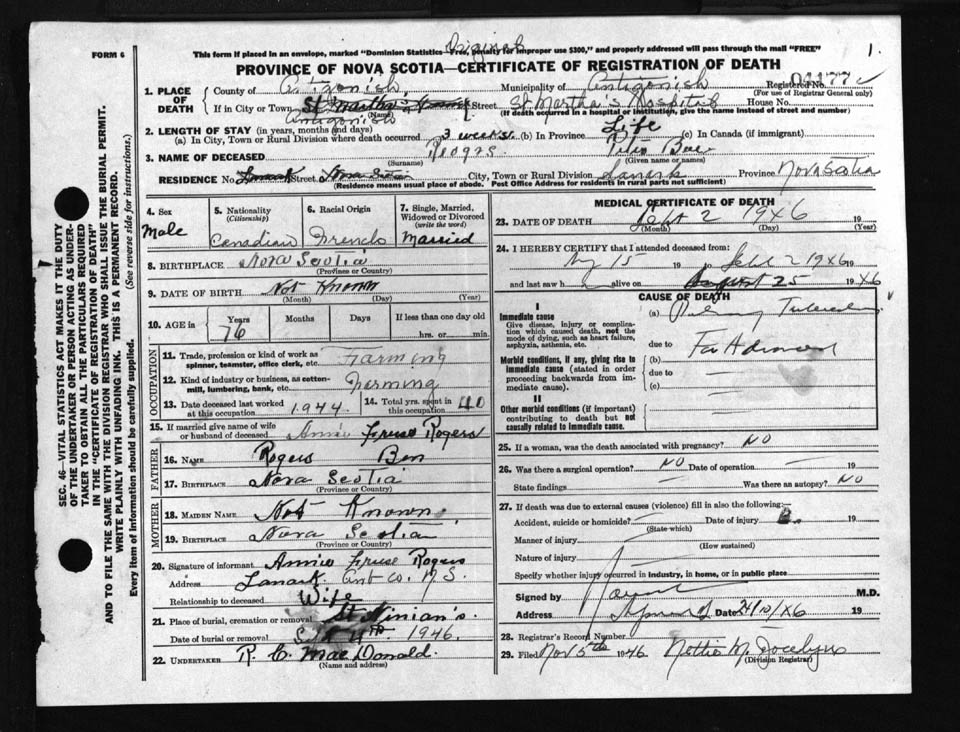 Original
1.
FORM 6
This form if placed in an envelope, marked "Dominion Statistics—Free, penalty for improper use $300," and properly addressed will pass through the mail "FREE"
PROVINCE OF NOVA SCOTIA—CERTIFICATE OF REGISTRATION OF DEATH
Registered No. 04177
(For use of Registrar General only)
1. PLACE OF DEATH
County of Antigonish Municipality of Antigonish
If in City or Town St Martha's Street St Martha's Hospital House No.
(Name) (If death occurred in a hospital or institution, give the name instead of street and number)
Antigonish
2. LENGTH OF STAY (in years, months and days)
(a) In City, Town or Rural Division where death occurred 3 weeks (b) in Province Life (c) in Canada (if immigrant)
3. NAME OF DECEASED Rogers Peter Ben
(Surname) (Given name or names)
RESIDENCE No. Lanark Street Nova Scotia City, Town or Rural Division Lanark Province Nova Scotia
(Residence means usual place of abode. Post Office Address for residents in rural parts not sufficient)
4. Sex Male
5. Nationality (Citizenship) Canadian
6. Racial Origin French
7. Single, Married, Widowed or Divorced (write the word) Married
8. BIRTHPLACE Nova Scotia
(Province or Country)
9. DATE OF BIRTH Not Known
(Month) (Day) (Year)
10. AGE in Years 76 Months Days If less than one day old hrs. or min.
OCCUPATION
11. Trade, profession or kind of work as spinner, teamster, office clerk, etc. Farming
12. Kind of industry or business, as cotton-mill, lumbering, bank, etc. Farming
13. Date deceased last worked at this occupation 1944.
14. Total yrs. spent in this occupation 40
15. If married give name of wife or husband of deceased Annie Rogers
FATHER
16. NAME Rogers Ben
17. BIRTHPLACE Nova Scotia
(Province or Country)
MOTHER
18. MAIDEN NAME Not Known
19. BIRTHPLACE Nova Scotia
(Province or Country)
20. Signature of informant Annie Rogers
Address Lanark Ant Co. N.S.
Relationship to deceased Wife
21. Place of burial, cremation or removal St Ninian's.
Date of burial or removal Sept 4th. 1946.
22. UNDERTAKER R. C. MacDonald.
(Name and address)
MEDICAL CERTIFICATE OF DEATH
23. DATE OF DEATH Sept 2 1946 19
(Month) (Day) (Year)
24. I HEREBY CERTIFY that I attended deceased from:
15 19 to Sept 2 1946 19
and last saw h alive on August 25 1946
CAUSE OF DEATH
I
Immediate cause
Give disease, injury or complication which caused death, not the mode of dying, such as heart failure, asphyxia, asthenia, etc.
(a) Pulmonary Tuberculosis
due to Far Advanced
Morbid conditions, if any, giving rise to immediate cause (stated in order proceeding backwards from immediate cause).
(b)
due to
(c)
II
Other morbid conditions (if important) contributing to death but not causally related to immediate cause.
25. If a woman, was the death associated with pregnancy? NO
26. Was there a surgical operation? NO Date of operation 19
State findings Was there an autopsy? NO
27. If death was due to external causes (violence) fill in also the following:
Accident, suicide or homicide? Date of injury 19
(State which)
Manner of injury
(How sustained)
Nature of injury
Specify whether injury occurred in industry, in home, or in public place
Signed by M.D.
Address Date 24/10/46 19
28. Registrar's Record Number
29. Filed Nov 5th 1946 Nettie M. Jocelyn
(Division Registrar)
SEC. 46—VITAL STATISTICS ACT MAKES IT THE DUTY
OF THE UNDERTAKER OR PERSON ACTING AS UNDERTAKER TO OBTAIN ALL THE PARTICULARS REQUIRED
IN THE "CERTIFICATE OF REGISTRATION OF DEATH"
AND TO FILE THE SAME WITH THE DIVISION REGISTRAR WHO SHALL ISSUE THE BURIAL PERMIT.
WRITE PLAINLY WITH UNFADING INK. THIS IS A PERMANENT RECORD.
Every item of information should be carefully supplied. (See reverse side for instructions.)